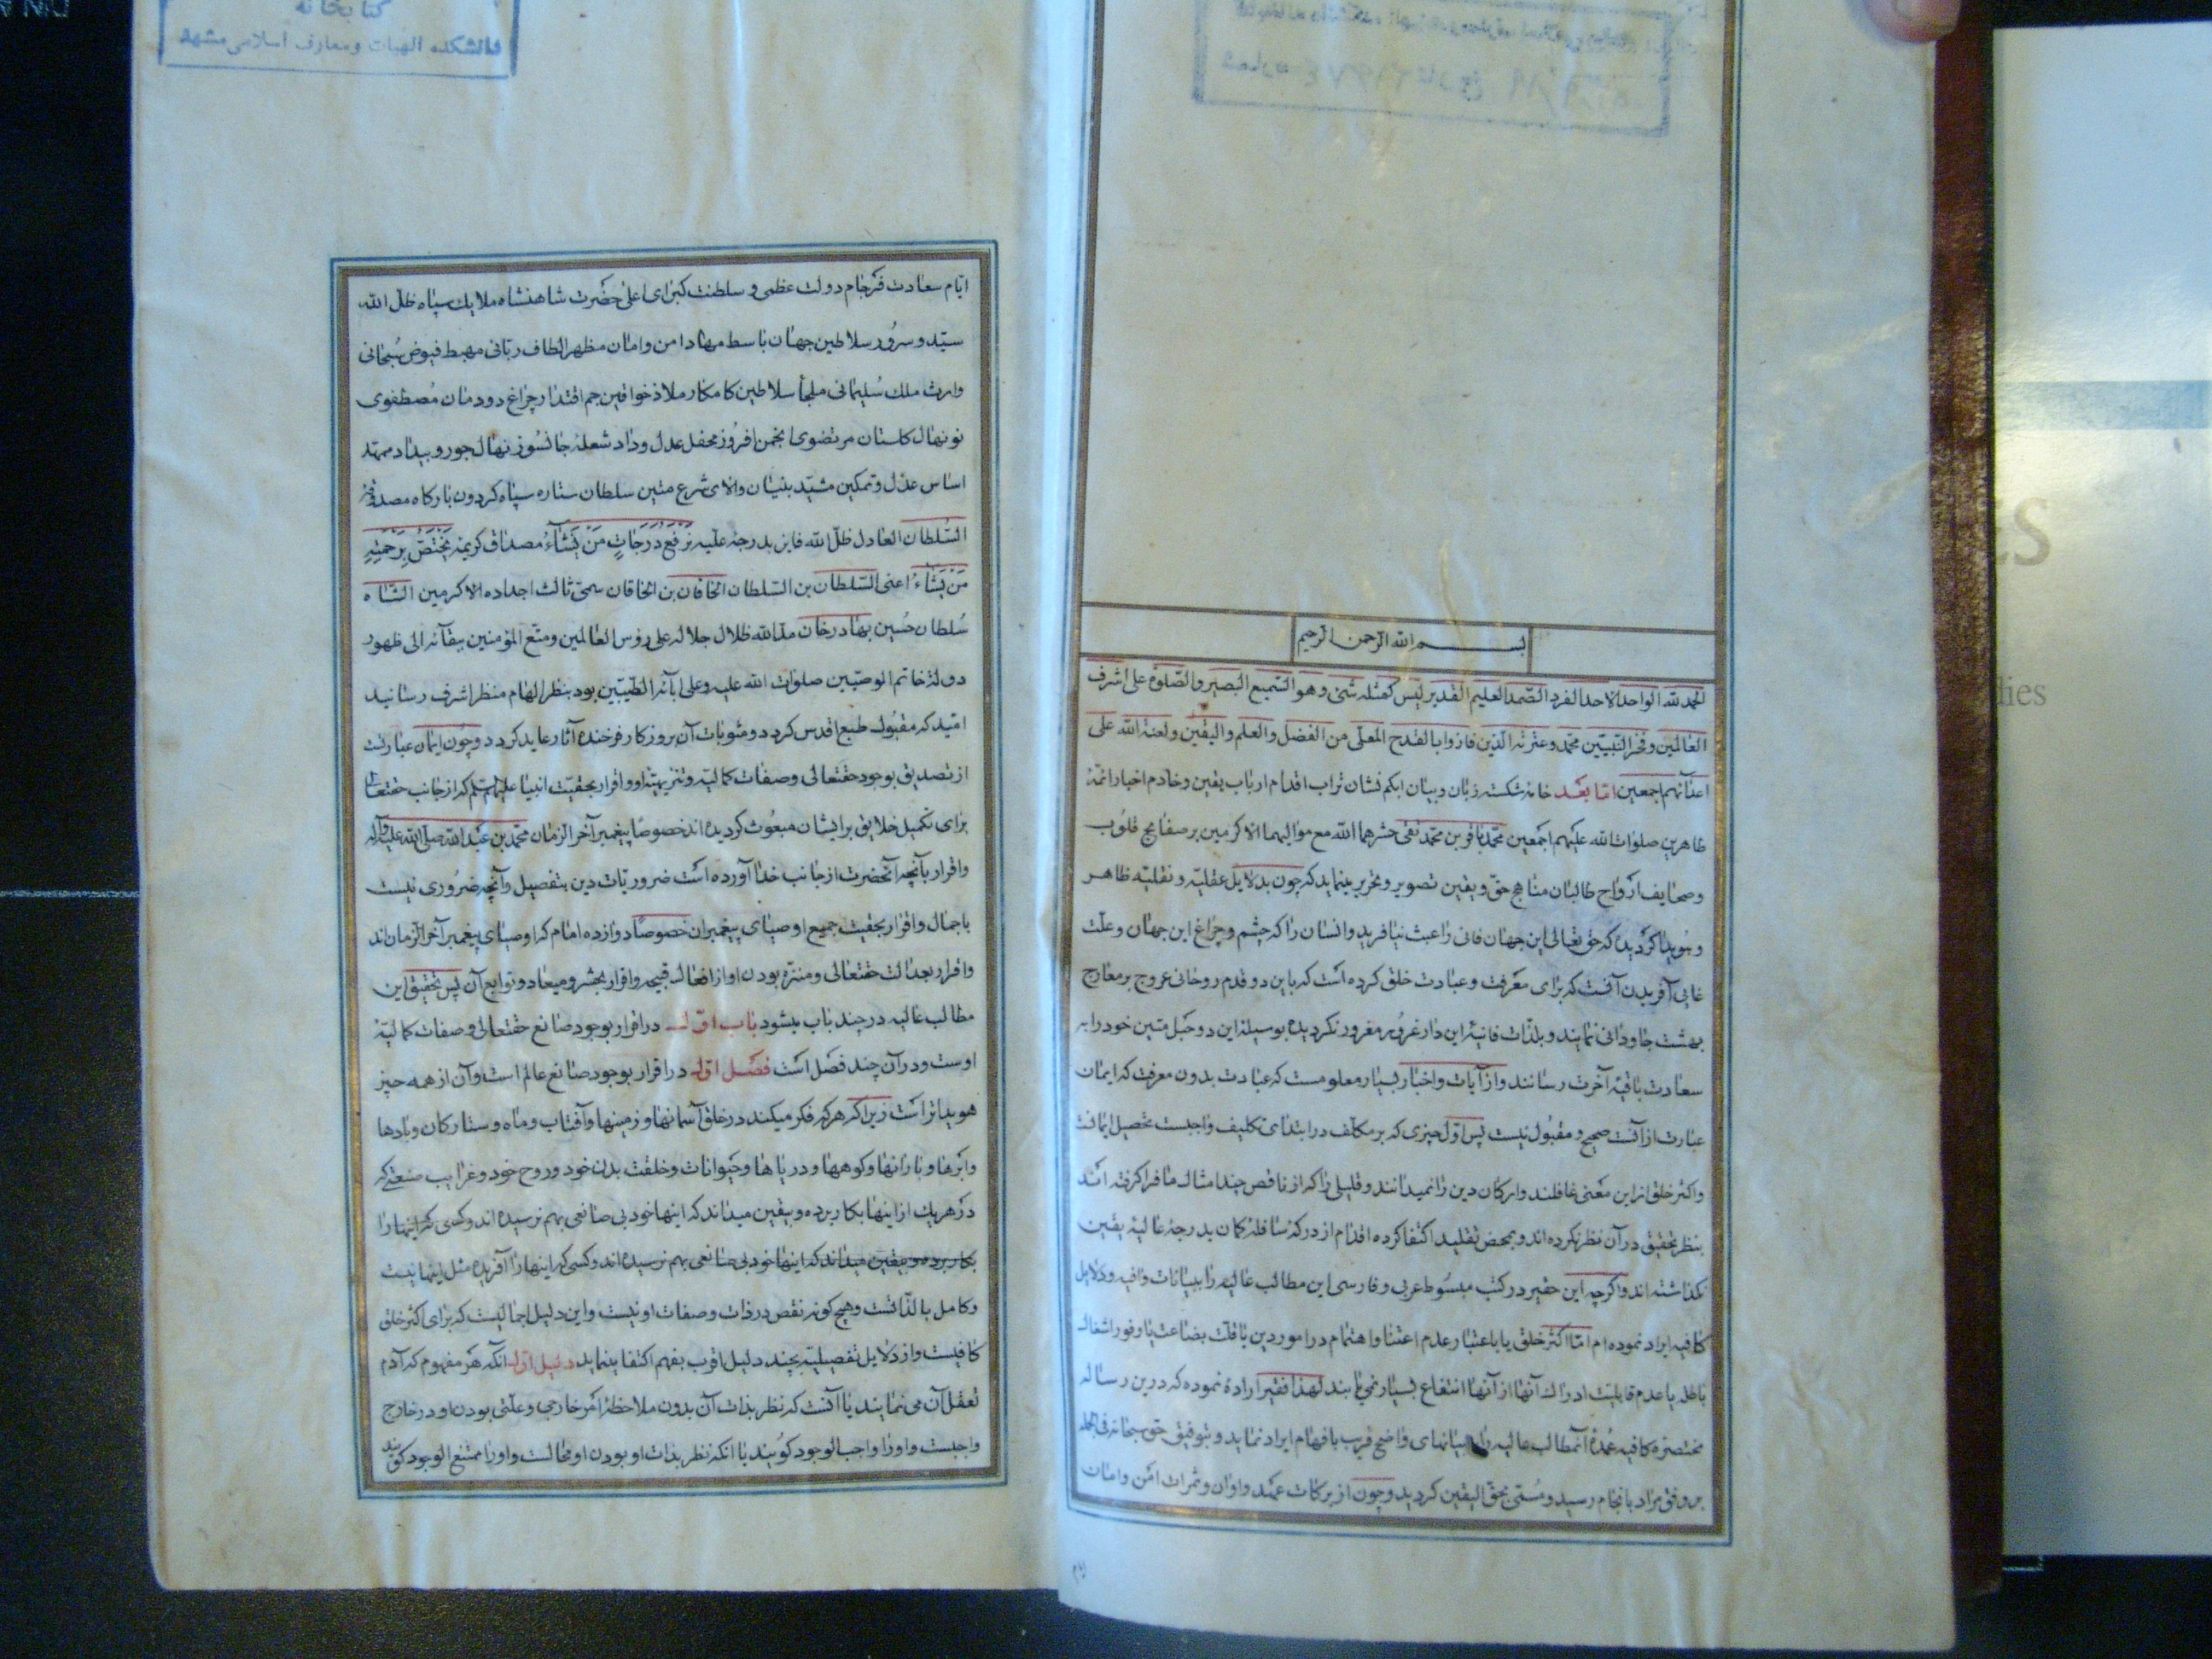 بسم الله الرحمن الرحیم
الحمد لله الواحد الاحد الفرد الصمد العلیم القدیر لیس کمثله شیء وهو السمیع البصیر والصلوة علی اشرف
العالمین وفخر النبیین محمد وعترته الذین فازوا بالقدح المعلی من الفضل والعلم والیقین ولعنة الله علی
اعدآئهم اجمعین اما بعد خامه شکسته زبان وبیان ابکم نشان تراب اقدام ارباب یقین وخادم اخبار ائمهٔ
طاهرین صلوات الله علیهم اجمعین محمد باقر بن محمد تقی حشرهما الله مع موالیهما الاکرمین بر صفایح قلوب
وصحایف ارواح طالبان مناهج حق ویقین تصویر وتحریر مینماید که چون بدلایل عقلیه ونقلیه ظاهر
وهویدا کردیده که حق تعالی این جهان فانی را عبث نیافریده وانسان را که چشم وچراغ این جهان وعلت
غایی آفریدن آنست که برای معرفت وعبادت خلق کرده است که باین دو قدم روحانی عروج بر معارج
بهشت جاودانی نمایند وبلذات فانیهٔ این دار غرور مغرور نکردیده بوسیلهٔ این دو حبل متین خود را به
سعادت باقیهٔ آخرت رسانند واز آیات واخبار بسیار معلومست که عبادت بدون معرفت که ایمان
عبارت از آنست صحیح ومقبول نیست پس اول چیزی که بر مکلف در ابتدای تکلیف واجبست تحصیل ایمانست
واکثر خلق از این معنی غافلند وارکان دین را نمیدانند وقلیلی را که از ناقص چند امثال ما فرا کرفته اند
بنظر تحقیق در آن نظر نکرده اند وبمحض تقلید اکتفا کرده اقدام از درکهٔ سافلهٔ کمان بدرجهٔ عالیهٔ یقین
نکذاشته اند واکرچه این حقیر در کتب مبسوط عربی وفارسی این مطالب عالیه را ببیانات وافیه ودلایل
کافیه ایراد نموده ام اما اکثر خلق یا باعتبار عدم اعتنا واهتمام در امور دین یا قلت بضاعت یا وفور اشغال
باطله یا عدم قابلیت ادراک آنها از آنها انتفاع بسیار نمی یابند لهذا فقیر اراده نموده که درین رساله
مختصره کافیه عمدهٔ آنمطالب عالیه را ببیانهای واضح قریب بافهام ایراد نماید وبتوفیق حق سبحانه فی الجمله
بر وفق مراد بانجام رسید ومسمی بحق الیقین کردید وچون از برکات عهد واوان وثمرات امن وامان
کتابخانه
دانشکده الهیات ومعارف اسلامی مشهد
ایام سعادت فرجام دولت عظمی وسلطنت کبرای اعلی حضرت شاهنشاه ملایك سپاه ظل الله
سید وسرور سلاطین جهان باسط مهاد امن وامان مظهر الطاف ربانی مهبط فیوض سبحانی
وارث ملك سلیمانی ملجأ سلاطین کامکار ملاذ خواقین جم اقتدار چراغ دودمان مصطفوی
نونهال کلستان مرتضوی انجمن افروز محفل عدل وداد شعلهٔ جانسوز نهال جور وبیداد ممهد
اساس عدل وتمکین مشید بنیان والای شرع متین سلطان ستاره سپاه کردون بارکاه مصدوقهٔ
السلطان العادل ظل الله فایز بدرجهٔ علیه نرفع درجات من نشاء مصداق کریمهٔ یختص برحمته
من یشاء اعنی السلطان بن السلطان الخاقان بن الخاقان سمی ثالث اجداده الاکرمین الشاه
سلطان حسین بهادر خان مد الله ظلال جلاله علی رؤس العالمین ومتع المؤمنین ببقآئه الی ظهور
دولة خاتم الوصیین صلوات الله علیه وعلی آبآئه الطیبین بود بنظر الهام منظر اشرف رسانید
امید که مقبول طبع اقدس کردد ومثوبات آن بروزکار فرخنده آثار عاید کردد وچون ایمان عبارتست
از تصدیق بوجود حقتعالی وصفات کمالیه وتنزیهیه او واقرار بحقیت انبیا علیهم السلم که از جانب حقتعالی
برای تکمیل خلایق بر ایشان مبعوث کردیده اند خصوصا پیغمبر آخر الزمان محمد بن عبد الله صلی الله علیه وآله
واقرار بآنچه آنحضرت از جانب خدا آورده است ضروریات دین بتفصیل وآنچه ضروری نیست
باجمال واقرار بحقیت جمیع اوصیای پیغمبران خصوصا دوازده امام که اوصیای پیغمبر آخر الزمان اند
واقرار بعدالت حقتعالی ومنزه بودن او از افعال قبیحه واقرار بحشر ومیعاد وتوابع آن پس تحقیق این
مطالب عالیه در چند باب میشود باب اول در اقرار بوجود صانع حقتعالی وصفات کمالیهٔ
اوست ودر آن چند فصل است فصل اول در اقرار بوجود صانع عالم است وآن از همه چیز
هویداتر است زیرا که هرکه فکر میکند در خلق آسمانها وزمینها وآفتاب وماه وستارکان وبادها
وابرها وبارانها وکوهها ودریاها وحیوانات وخلقت بدن خود وروح خود وغرایب صنعتی که
در هریك از اینها بکار برده وبیقین میداند که اینها خود بی صانعی بهم نرسیده اند وکسی که اینها را
بکار برده وبیقین میداند که اینها خود بی صانعی بهم نرسیده اند وکسی که اینها را آفریده مثل اینها نیست
وکامل بالذاتست وهیچ کونه نقص در ذات وصفات او نیست واین دلیل اجمالیست که برای اکثر خلق
کافیست واز دلایل تفصیلیه بچند دلیل اقرب بفهم اکتفا مینماید دلیل اول انکه هر مفهوم که آدم
تعقل آن می نمایند یا آنست که نظر بذات آن بدون ملاحظهٔ امر خارجی وعلتی بودن او در خارج
واجبست واورا واجب الوجود کویند یا انکه نظر بذات او بودن او محالست واورا ممتنع الوجود کویند